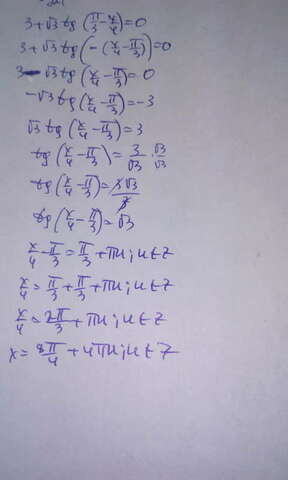 3+√3 tg(π/3-x/4)=0
3+√3 tg(-(x/4-π/3))=0
3-√3 tg(x/4-π/3)=0
-√3 tg(x/4-π/3)=-3
√3 tg(x/4-π/3)=3
tg(x/4-π/3)=3/√3·√3/√3
tg(x/4-π/3)=3√3/3
tg(x/4-π/3)=√3
x/4-π/3=π/3+πn; n∈Z
x/4=π/3+π/3+πn; n∈Z
x/4=2π/3+πn; n∈Z
x=8π/4+4πn; n∈Z